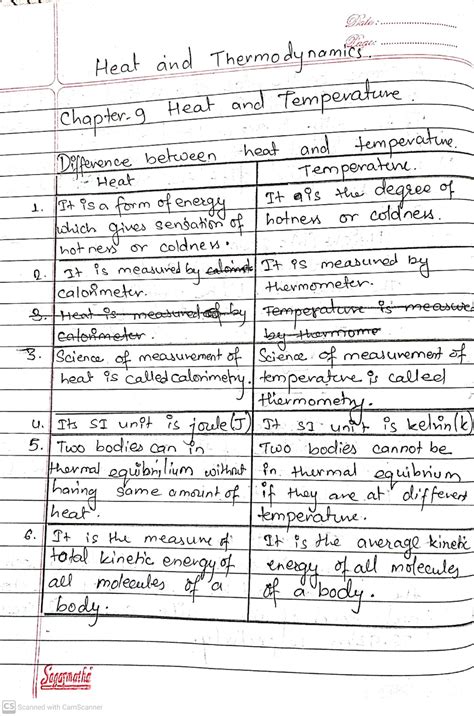 Date:
Page:
Heat and Thermodynamics.
Chapter-9 Heat and Temperature.
Difference between heat and temperature.
Heat
Temperature.
1. It is a form of energy
which gives sensation of
hotness or coldness.
It is the degree of
hotness or coldness.
2. It is measured by
calorimeter.
It is measured by
thermometer.
3. Heat is measured of by
calorimeter.
Temperature is measure
by thermome
3. Science of measurement of
heat is called calorimetry.
Science of measurement of
temperature is called
thermometry.
4. Its SI unit is joule(J)
It SI unit is kelvin(k)
5. Two bodies can in
thermal equibrilium without
having same amount of
heat.
Two bodies cannot be
in thermal equibrium
if they are at different
temperature.
6. It is the measure of
total kinetic energy of
all molecules of a
body.
It is the average kinetic
energy of all molecules
of a body.
Sagarmatha
CS Scanned with CamScanner